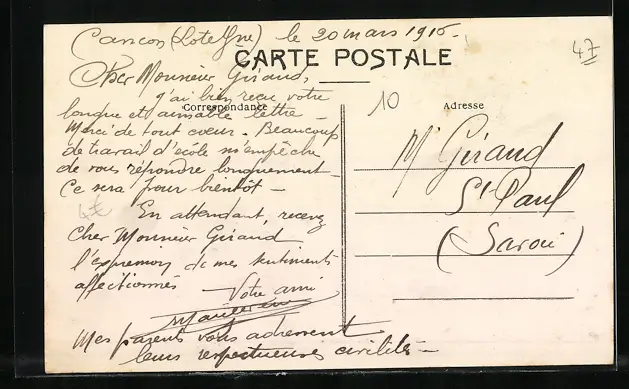 Cancon (Lot et Gne) le 20 mars 1916.
CARTE POSTALE
47
Cher Monsieur Giraud,
j'ai bien reçu votre
longue et aimable lettre –
Merci de tout coeur. Beaucoup
de travail d'école m'empêche
de vous répondre longuement
Ce sera pour bientôt –
En attendant, recevez
Cher Monsieur Giraud
l'expression de mes sentiments
affectionnés
Votre ami
Mes parents vous adressent
leurs respectueuses civilités –
Correspondance
10
Adresse
Mr Giraud
St Paul
(Savoie)